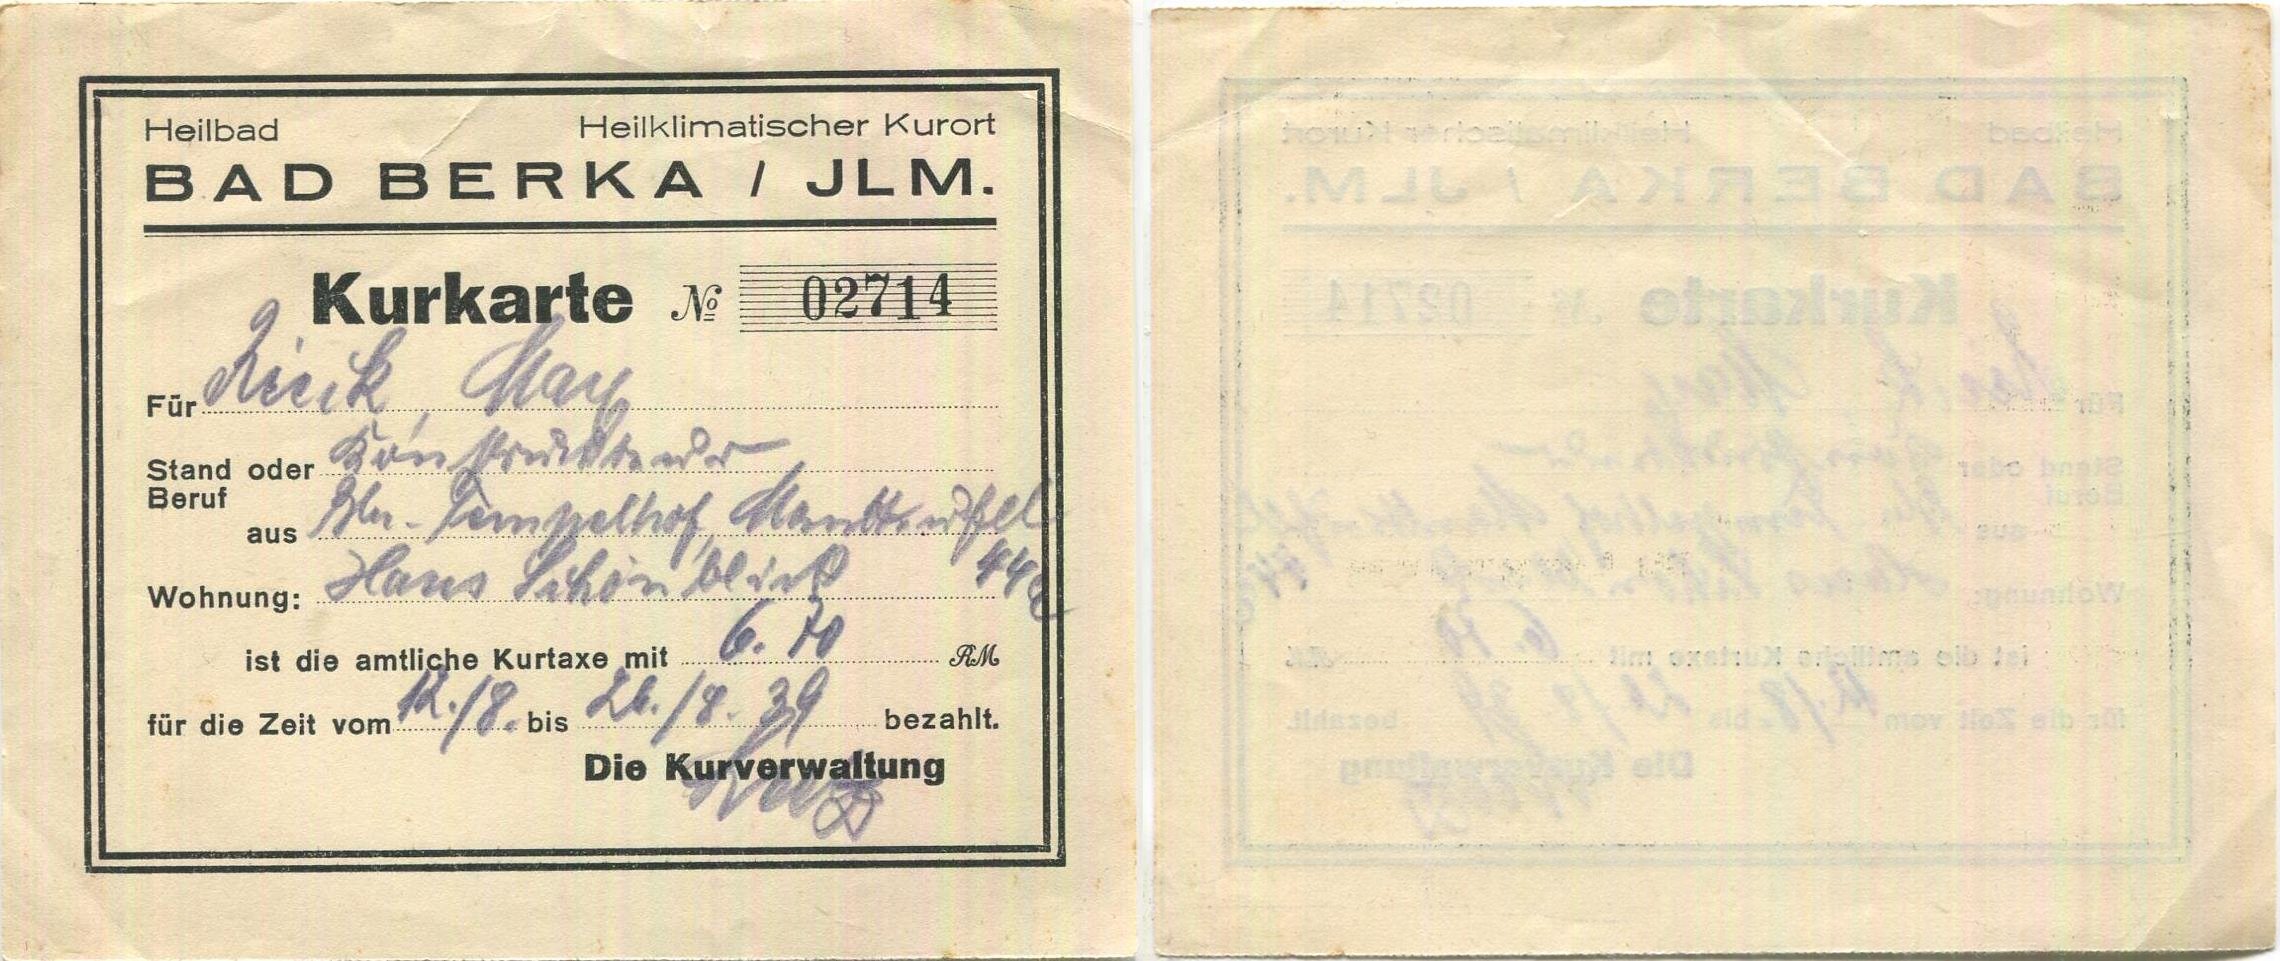 Heilbad Heilklimatischer Kurort
BAD BERKA / JLM.
Kurkarte № 02714
Für Rieck, Max
Stand oder Beruf Konstrukteur
aus Bln.-Tempelhof, Manteuffelstr. 44
Wohnung: Haus Schönblick
ist die amtliche Kurtaxe mit 6.70 RM
für die Zeit vom 12./8. bis 26./8. 39 bezahlt.
Die Kurverwaltung